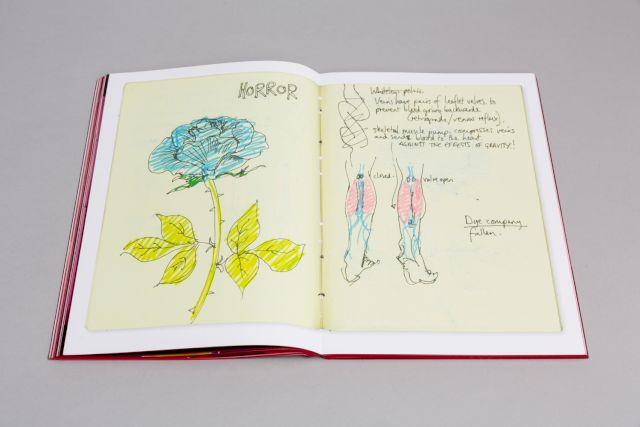 HORROR
Veins have pairs of leaflet valves, to
prevent blood going backwards
(retrograde/venous reflux).
skeletal muscle pump, compresses veins
and sends blood to the heart
AGAINST THE EFFECTS OF GRAVITY!
closed
valve open
Dye company
fallen.